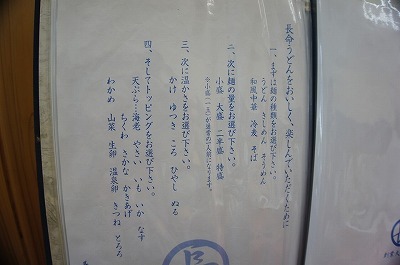 長命うどんをおいしく、楽しんでいただくために
一、まずは麺の種類をお選び下さい。
うどん きしめん そうめん
和風中華 冷麦 そば
二、次に麺の量をお選び下さい。
小盛 大盛 二半盛 特盛
三、次に温かさをお選び下さい。
かけ ゆつき ころ ひやし ぬる
四、そしてトッピングをお選び下さい。
天ぷら…海老 やさい いも いか なす
ちくわ さかな かきあげ
わかめ 山菜 生卵 温泉卵 きつね とろろ